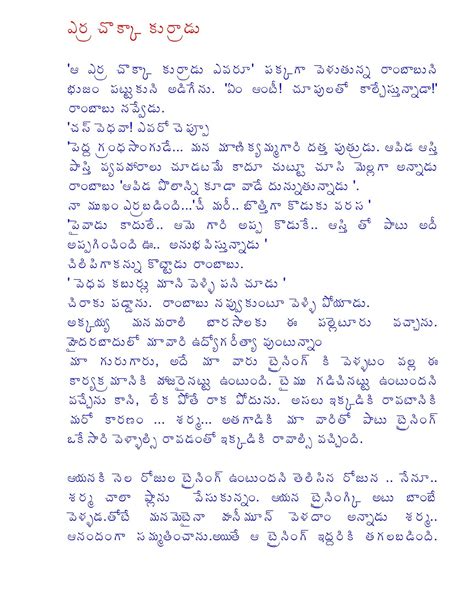 ఎర్ర చొక్కా కుర్రాడు
'ఆ ఎర్ర చొక్కా కుర్రాడు ఎవరూ' పక్కగా వెళుతున్న రాంబాబుని
భుజం పట్టుకుని అడిగేను. 'ఏం ఆంటీ! చూపులతో కాల్చేస్తున్నాడా!'
రాంబాబు నవ్వేడు.
'చస్ వెధవా! ఎవరో చెప్పూ
'పెద్ద గ్రంధసాంగుడే... మన మాణిక్యమ్మగారి దత్త పుత్రుడు. ఆవిడ ఆస్తి
పాస్తి వ్యవహారాలు చూడటమే కాదూ చుట్టూ చూసి మెల్లగా అన్నాడు
రాంబాబు 'ఆవిడ పొలాన్ని కూడా వాడే దున్నుతున్నాడు '.
నా ముఖం ఎర్రబడింది...'చీ మరీ.. బొత్తిగా కొడుకు వరస '
'పైవాడు కాదులే.. ఆమె గారి అప్ప కొడుకే.. ఆస్తి తో పాటు అదీ
అప్పగించింది ఊ.. అనుభవిస్తున్నాడు '
చిలిపిగాకన్ను కొట్టాడు రాంబాబు.
' వెధవ కబుర్లు మాని వెళ్ళి పని చూడు '
చిరాకు పడ్డాను. రాంబాబు నవ్వుకుంటూ వెళ్ళి పోయాడు.
అక్కయ్య మనమరాలి బారసాలకు ఈ పల్లెటూరు వచ్చాను.
హైదరబాదులో మావారి ఉద్యోగరీత్యా వుంటున్నాం
మా గురుగారు, అదే మా వారు ట్రైనింగ్ కి వెళ్ళటం వల్ల ఈ
కార్యక్రమానికి హాజరైనట్టు ఉంటుంది. టైము గడిచినట్టు ఉంటుందని
వచ్చేను కాని, లేక పోతే రాక పోదును. అసలు ఇక్కడికి రావటానికి
మరో కారణం ... శర్మ... అతగాడికి మా వారితో పాటు ట్రైనింగ్
ఒకేసారి వెళ్ళాల్సి రావడంతో ఇక్కడికి రావాల్సి వచ్చింది.
ఆయనకి నెల రోజుల ట్రైనింగ్ ఉంటుందని తెలిసిన రోజున .. నేనూ..
శర్మ చాలా ప్లాను వేసుకున్నం. ఆయన ట్రైనింగ్కి అటు బాంబే
వెళ్ళడ.తోటే మనమెటైనా హనీమూన్ వెళదాం అన్నాడు శర్మ..
ఆనందంగా సమ్మతించాను.అయితే ఆ ట్రైనింగ్ ఇద్దరికి తగలబడింది.